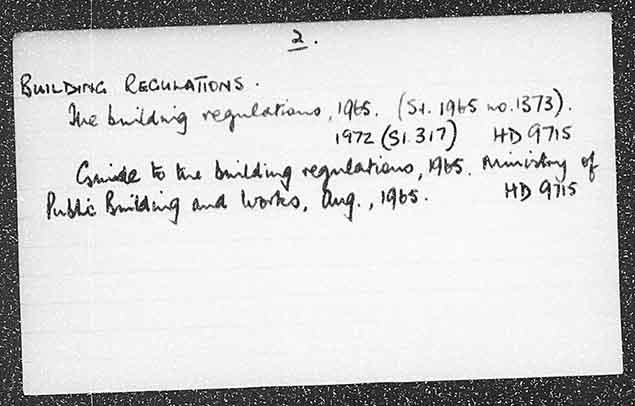 2.
BUILDING REGULATIONS.
The building regulations, 1965. (S.I. 1965 no. 1373).
1972 (SI. 317) HD 9715
Guide to the building regulations, 1965. Ministry of
Public Building and Works, Aug., 1965. HD 9715